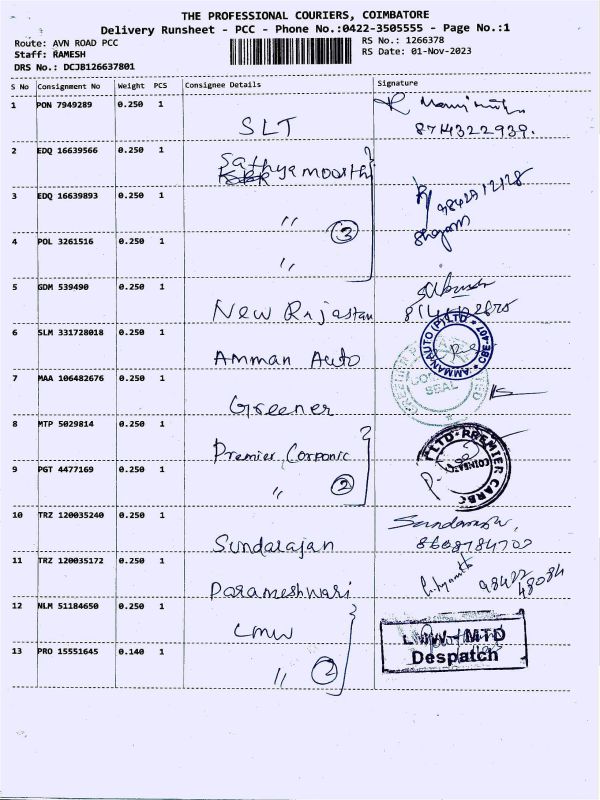 THE PROFESSIONAL COURIERS, COIMBATORE
Delivery Runsheet - PCC - Phone No.:0422-3505555 - Page No.:1
Route: AVN ROAD PCC
RS No.: 1266378
Staff: RAMESH
RS Date: 01-Nov-2023
DRS No.: DCJB126637801
S No Consignment No Weight PCS Consignee Details Signature
1 PON 7949289 0.250 1 SLT
8714322939.
2 EDQ 16639566 0.250 1 Sathyamoorthy
3 EDQ 16639893 0.250 1 〃
4 POL 3261516 0.250 1 〃 3
5 GDM 539490 0.250 1 New Rajastan
6 SLM 331728018 0.250 1 Amman Auto
AMMANAUTO (P) LTD * CBE-407 *
7 MAA 106482676 0.250 1 Greener
SEAL
8 MTP 5029814 0.250 1 Premier Corponic
9 PGT 4477169 0.250 1 〃 2
10 TRZ 120035240 0.250 1 Sundarajan
8668784700
11 TRZ 120035172 0.250 1 Parameshwari
98422 48084
12 NLM 51184650 0.250 1 LMW
13 PRO 15551645 0.140 1 〃 2
LMW - MTD
Despatch